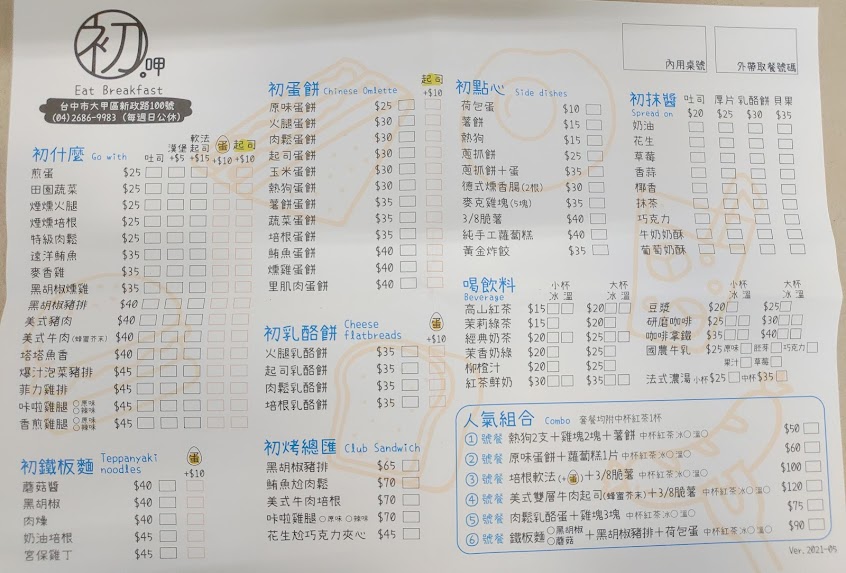 初呷
Eat Breakfast
台中市大甲區新政路100號
(04)2686-9983 (每週日公休)
內用桌號
外帶取餐號碼
初什麼 Go with 吐司 漢堡+$5 軟法起司+$15 蛋+$10 起司+$10
煎蛋 $25
田園蔬菜 $25
煙燻火腿 $25
煙燻培根 $25
特級肉鬆 $25
遠洋鮪魚 $35
麥香雞 $35
黑胡椒燻雞 $35
黑胡椒豬排 $40
美式豬肉 $40
美式牛肉(蜂蜜芥末) $40
塔塔魚香 $40
爆汁泡菜豬排 $45
菲力雞排 $45
咔啦雞腿 原味 辣味 $45
香煎雞腿 原味 辣味 $45
初鐵板麵 Teppanyaki noodles 蛋 +$10
蘑菇醬 $40
黑胡椒 $40
肉燥 $40
奶油培根 $45
宮保雞丁 $45
初蛋餅 Chinese Omlette 起司 +$10
原味蛋餅 $25
火腿蛋餅 $30
肉鬆蛋餅 $30
起司蛋餅 $30
玉米蛋餅 $30
熱狗蛋餅 $30
薯餅蛋餅 $35
蔬菜蛋餅 $35
培根蛋餅 $35
鮪魚蛋餅 $40
燻雞蛋餅 $40
里肌肉蛋餅 $40
初乳酪餅 Cheese flatbreads 蛋 +$10
火腿乳酪餅 $35
起司乳酪餅 $35
肉鬆乳酪餅 $35
培根乳酪餅 $35
初烤總匯 Club Sandwich
黑胡椒豬排 $65
鮪魚尬肉鬆 $70
美式牛肉培根 $70
咔啦雞腿 原味 辣味 $70
花生尬巧克力夾心 $45
初點心 Side dishes
荷包蛋 $10
薯餅 $15
熱狗 $15
蔥抓餅 $25
蔥抓餅+蛋 $35
德式燻香腸(2根) $30
麥克雞塊(5塊) $35
3/8脆薯 $40
純手工蘿蔔糕 $40
黃金炸餃 $35
初抹醬 Spread on 吐司 $20 厚片 $25 乳酪餅 $30 貝果 $35
奶油
花生
草莓
香蒜
椰香
抹茶
巧克力
牛奶奶酥
葡萄奶酥
喝飲料 Beverage 小杯 冰 溫 大杯 冰 溫
高山紅茶 $15 $20
茉莉綠茶 $15 $20
經典奶茶 $20 $25
茉香奶綠 $20 $25
柳橙汁 $20 $25
紅茶鮮奶 $30 $35
小杯 冰 溫 大杯 冰 溫
豆漿 $20 $25
研磨咖啡 $25 $30
咖啡拿鐵 $35 $40
國農牛乳 $25 原味 胚芽 巧克力
果汁 草莓
法式濃湯 小杯$25 中杯$35
人氣組合 Combo 套餐均附中杯紅茶1杯
① 號餐 熱狗2支+雞塊2塊+薯餅 中杯紅茶 冰 溫 $50
② 號餐 原味蛋餅+蘿蔔糕1片 中杯紅茶 冰 溫 $60
③ 號餐 培根軟法(+蛋)+3/8脆薯 中杯紅茶 冰 溫 $100
④ 號餐 美式雙層牛肉起司(蜂蜜芥末)+3/8脆薯 中杯紅茶 冰 溫 $120
⑤ 號餐 肉鬆乳酪蛋+雞塊3塊 中杯紅茶 冰 溫 $75
⑥ 號餐 鐵板麵 黑胡椒 蘑菇 +黑胡椒豬排+荷包蛋 中杯紅茶 冰 溫 $90
Ver. 2021-05